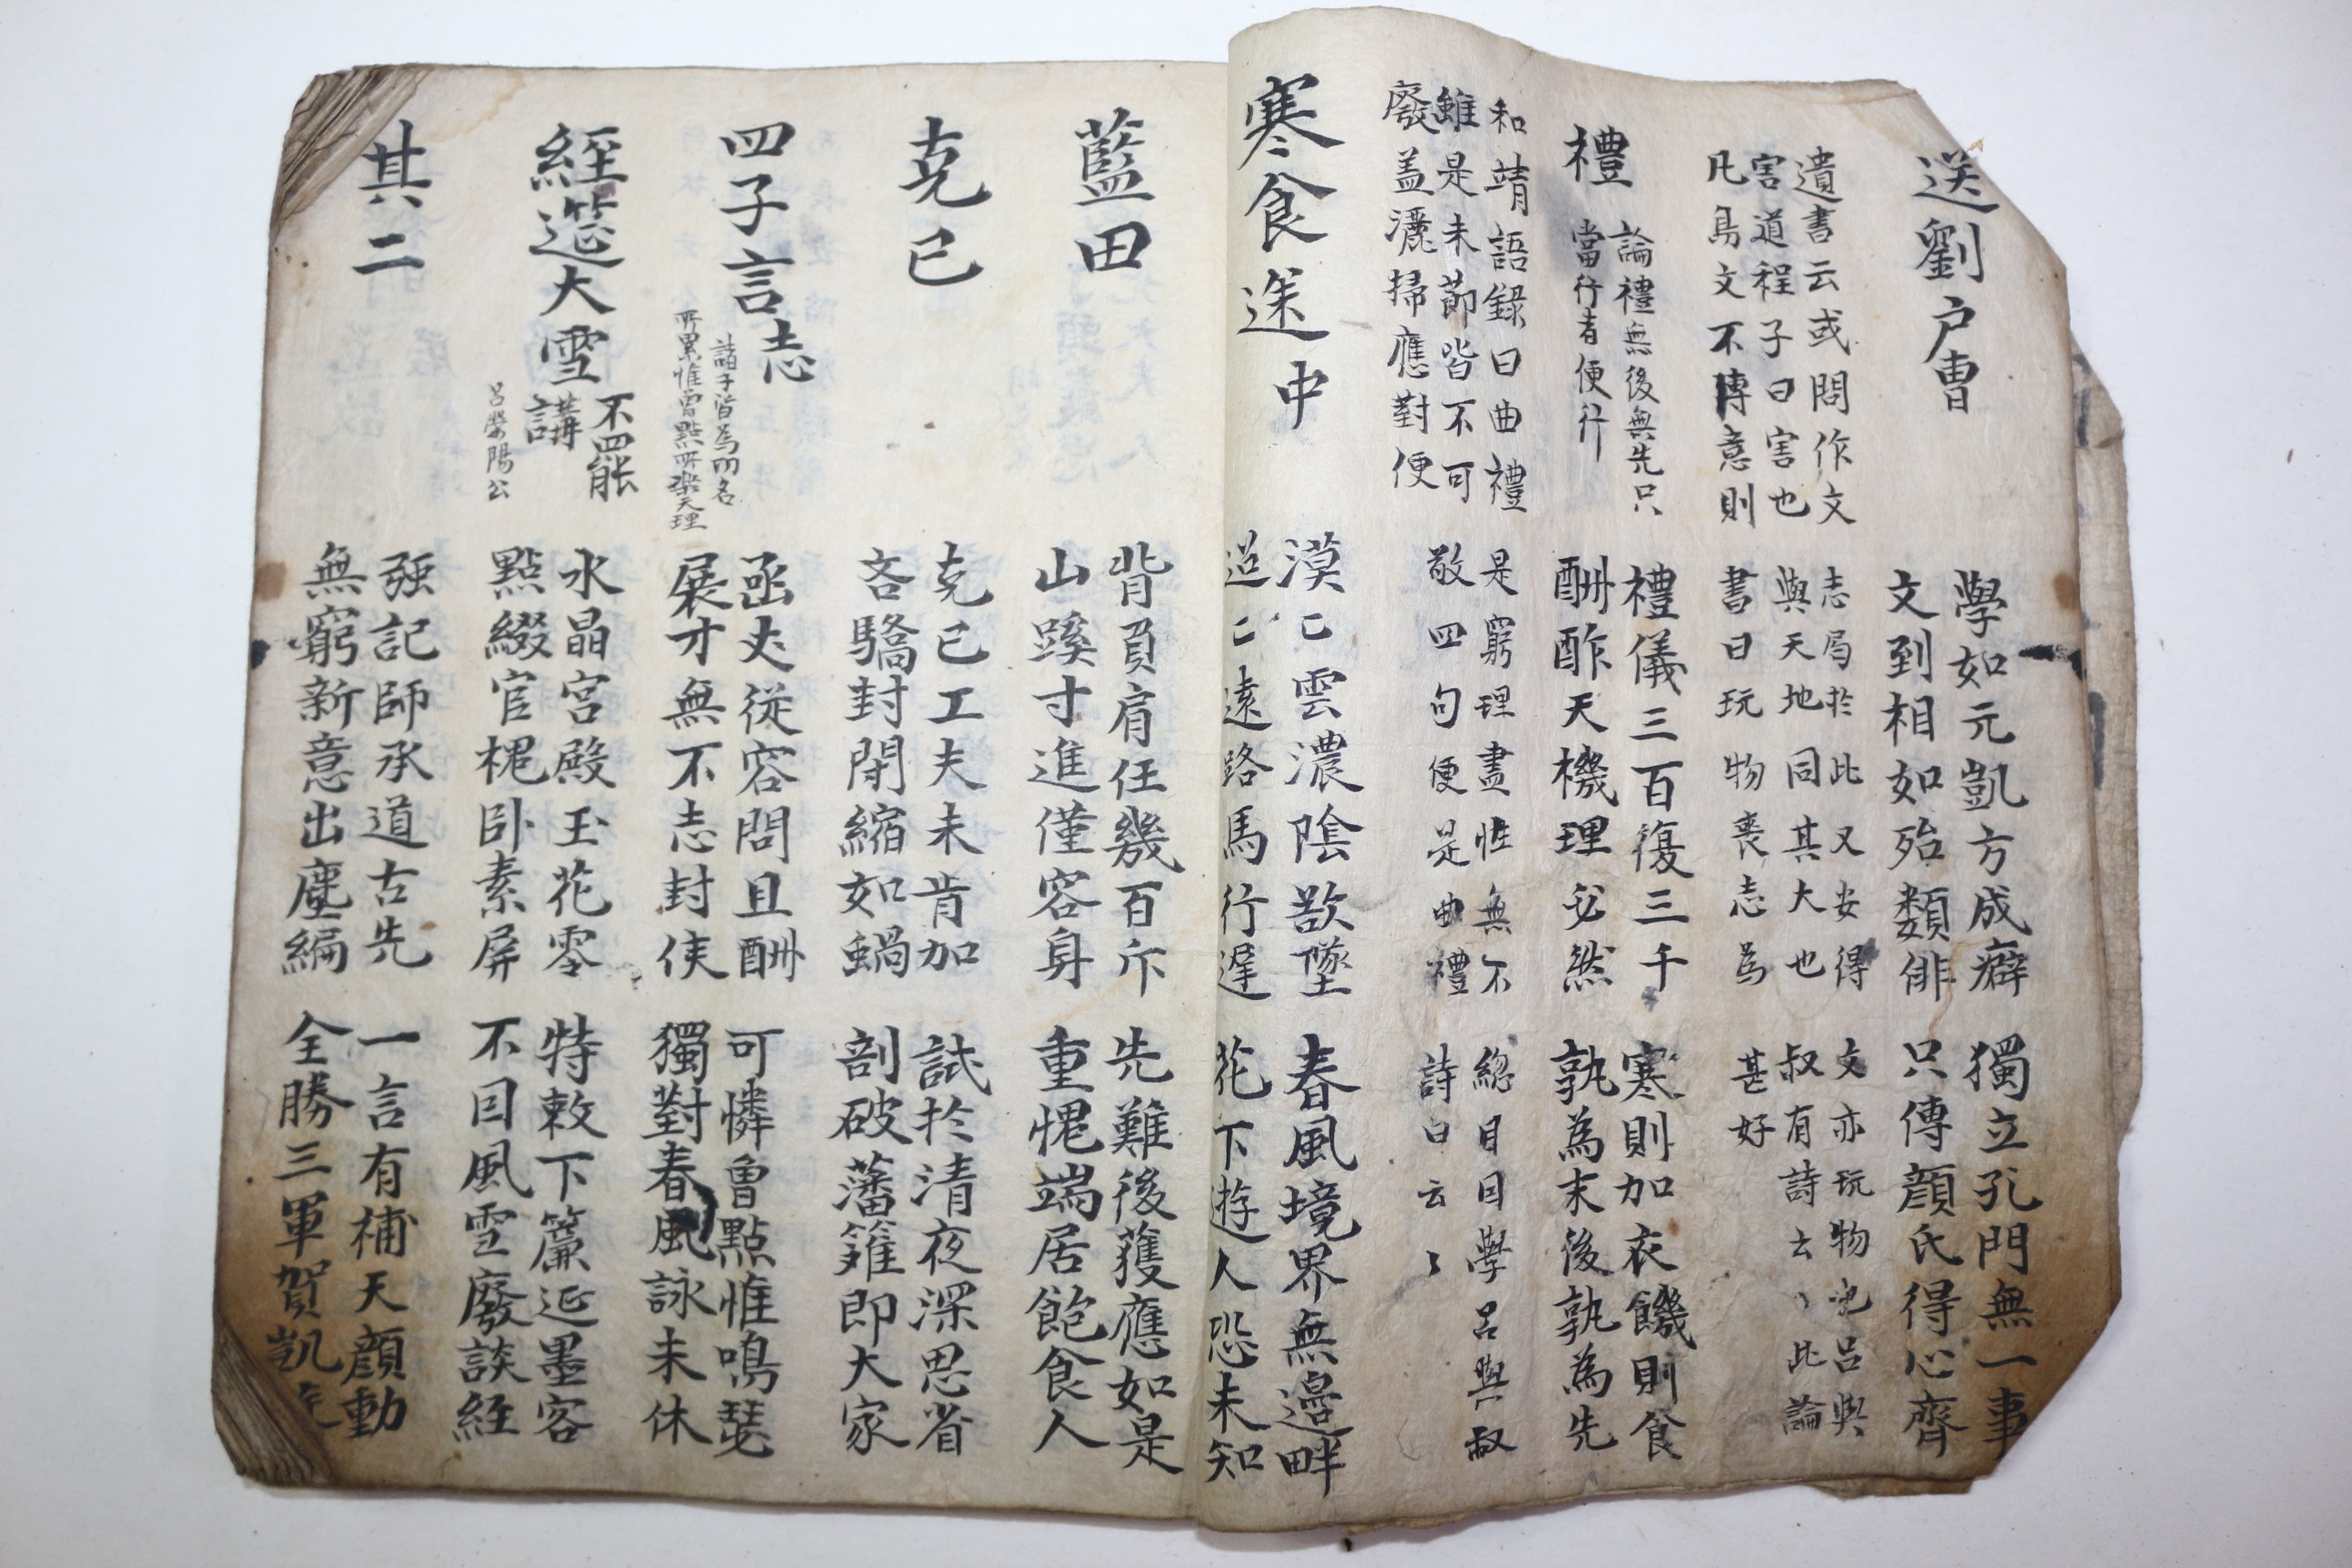 送劉户曹
學如元凱方成癖 獨立孔門無一事
文到相如殆類俳 只傳顏氏得心齊
遺書云或問作文 志局於此又安得 文亦玩物也呂與
害道程子曰害也 與天地同其大也 叔有詩云丶此論
凡為文不專意則 書曰玩物喪志為 甚好
禮
論禮無後無先只
當行者便行
禮儀三百復三千 寒則加衣饑則食
酬酢天機理必然 孰為末後孰為先
和靖語錄曰曲禮 是窮理盡性無不 緫目目學呂與叔
雖是末節皆不可 敬四句便是曲禮 詩曰云丶
廢盖灑掃應對便
寒食途中
漠〻雲濃陰欲墜 春風境界無邉畔
迢〻遠路馬行遅 花下遊人恐未知
藍田
背負肩任幾百斤 先難後獲應如是
山蹊寸進僅容身 重愧端居飽食人
克己
克己工夫未肯加 試於清夜深思省
吝驕封閉縮如蝸 剖破藩籬即大家
四子言志
諸子皆為功名
所累惟曾點所樂天理
函丈從容問且酬 可憐曾點惟鳴瑟
展才無不志封侯 獨對春風詠未休
經筵大雪不罷講
呂滎陽公
水晶宮殿玉花零 特敕下簾延墨客
點綴官槐卧素屏 不因風雪廢談経
其二
强記師承道古先 一言有補天顏動
無窮新意出塵編 全勝三軍賀凱